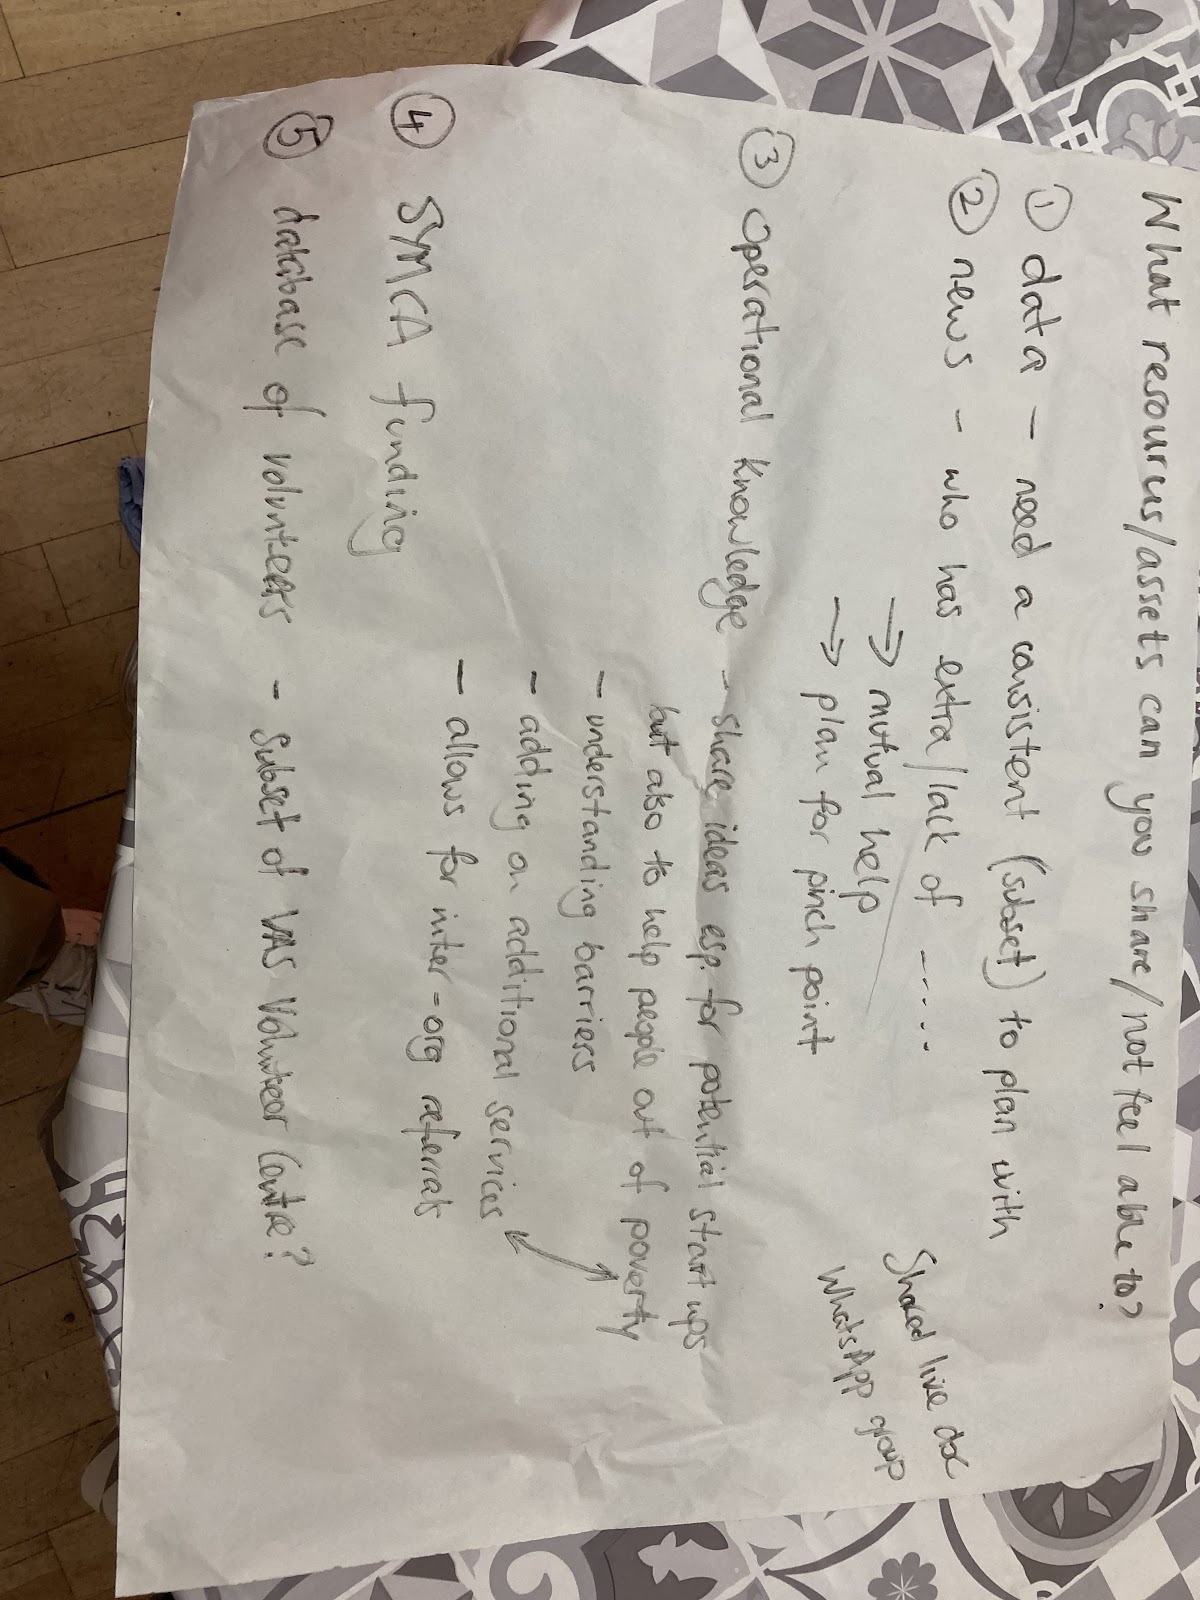 What resources/assets can you share/not feel able to?
① data - need a consistent (subset) to plan with
② news - who has extra/lack of .....
→ mutual help
→ plan for pinch point
Shared live doc
WhatsApp group
③ Operational knowledge - share ideas esp. for potential start ups
but also to help people out of poverty
- understanding barriers
- adding on additional services
- allows for inter-org referrals
④ SYMCA funding
⑤ database of volunteers - Subset of VAS Volunteer Centre?